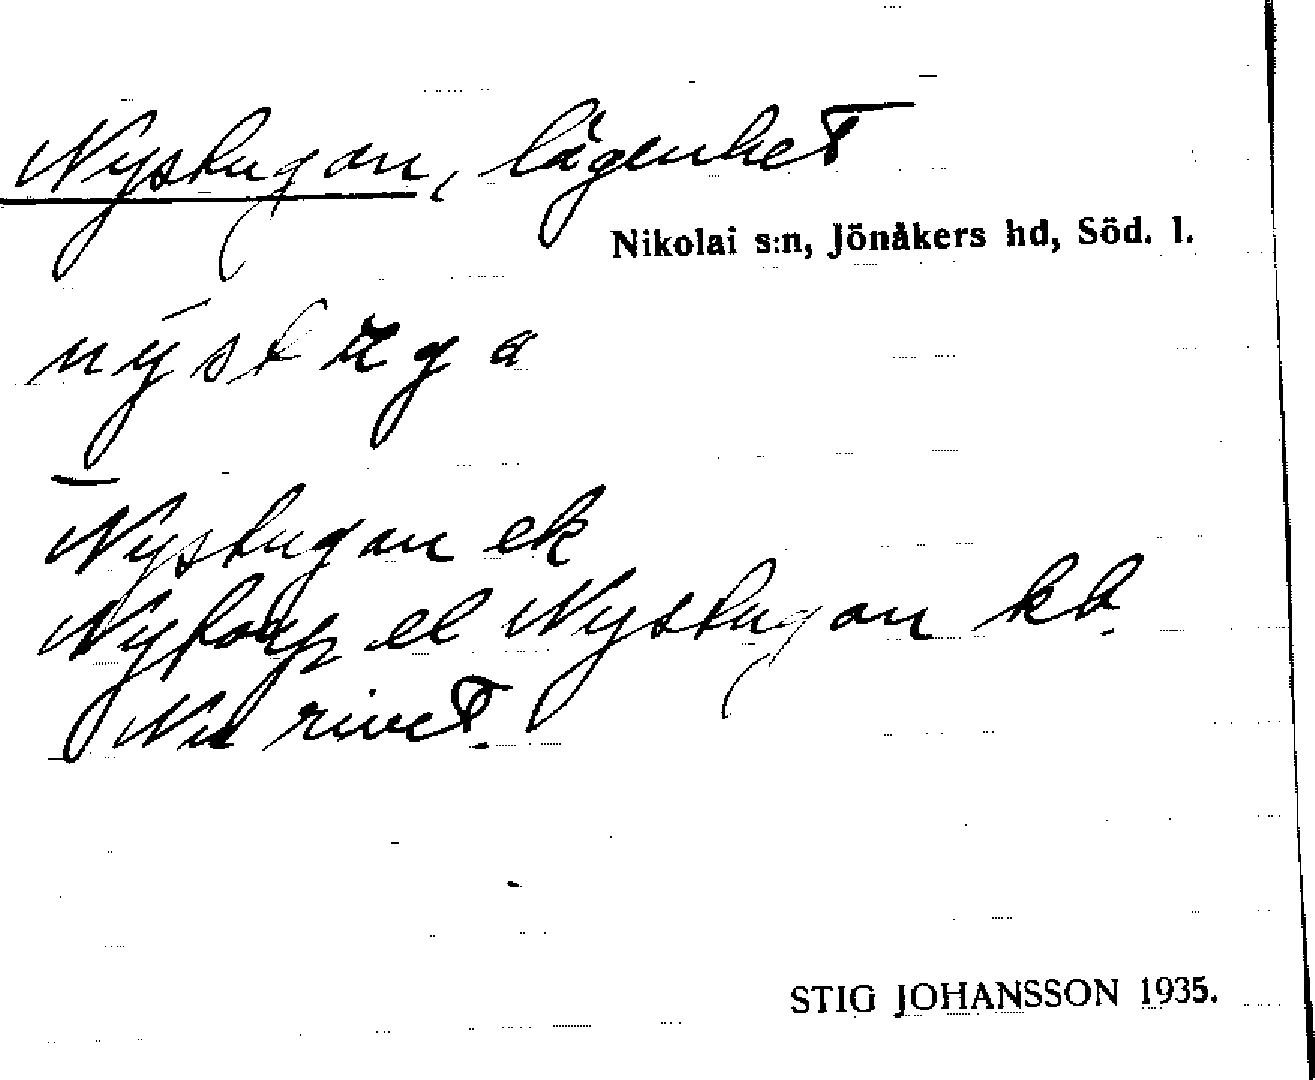 Nystugan, lägenhet
Nikolai s:n, Jönåkers hd, Söd. l.
Nystugan ek
Nytorp el Nystugan kb.
Nu rivet.
STIG JOHANSSON 1935.